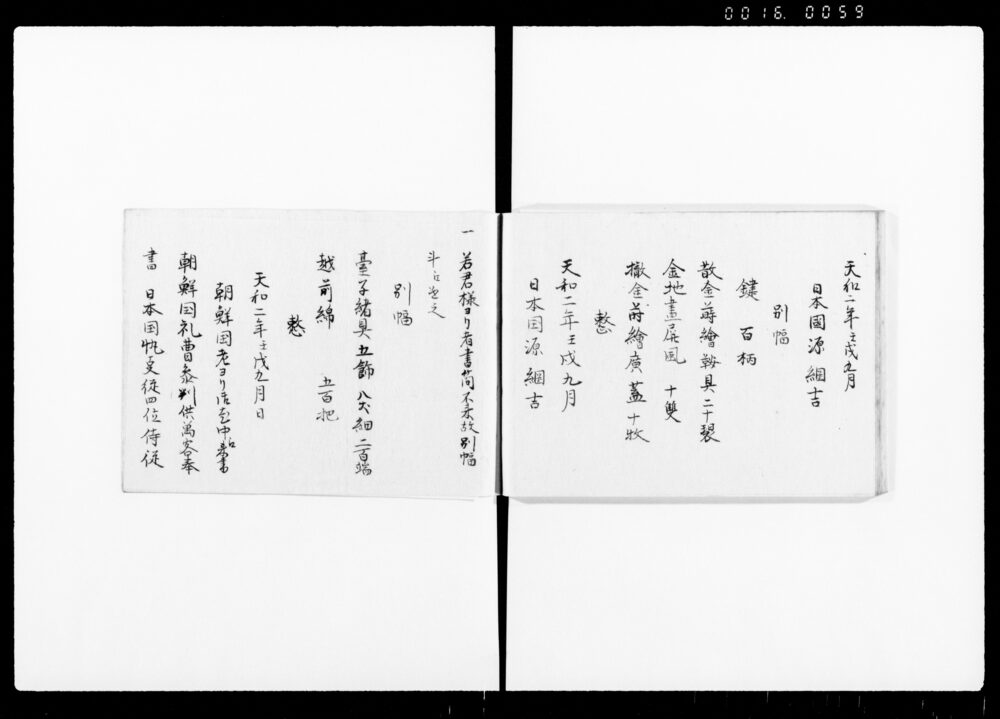 0016. 0059
天和二年壬戌九月
日本國源綱吉
別幅
鑓 百柄
散金蒔繪鞍具 二十
金地畫屏風 十雙
撒金蒔繪廣蓋 十枚
整
天和二年壬戌九月
日本国源綱吉
一 若君様ヨリ者書簡不来故別幅
斗
別幅
臺子緒具 五飾 八丈紬 二百端
越前綿 五百把
整
天和二年壬戌九月日
朝鮮国老ヨリ
朝鮮国礼曹参判 奉
書 日本国執 従四位侍従